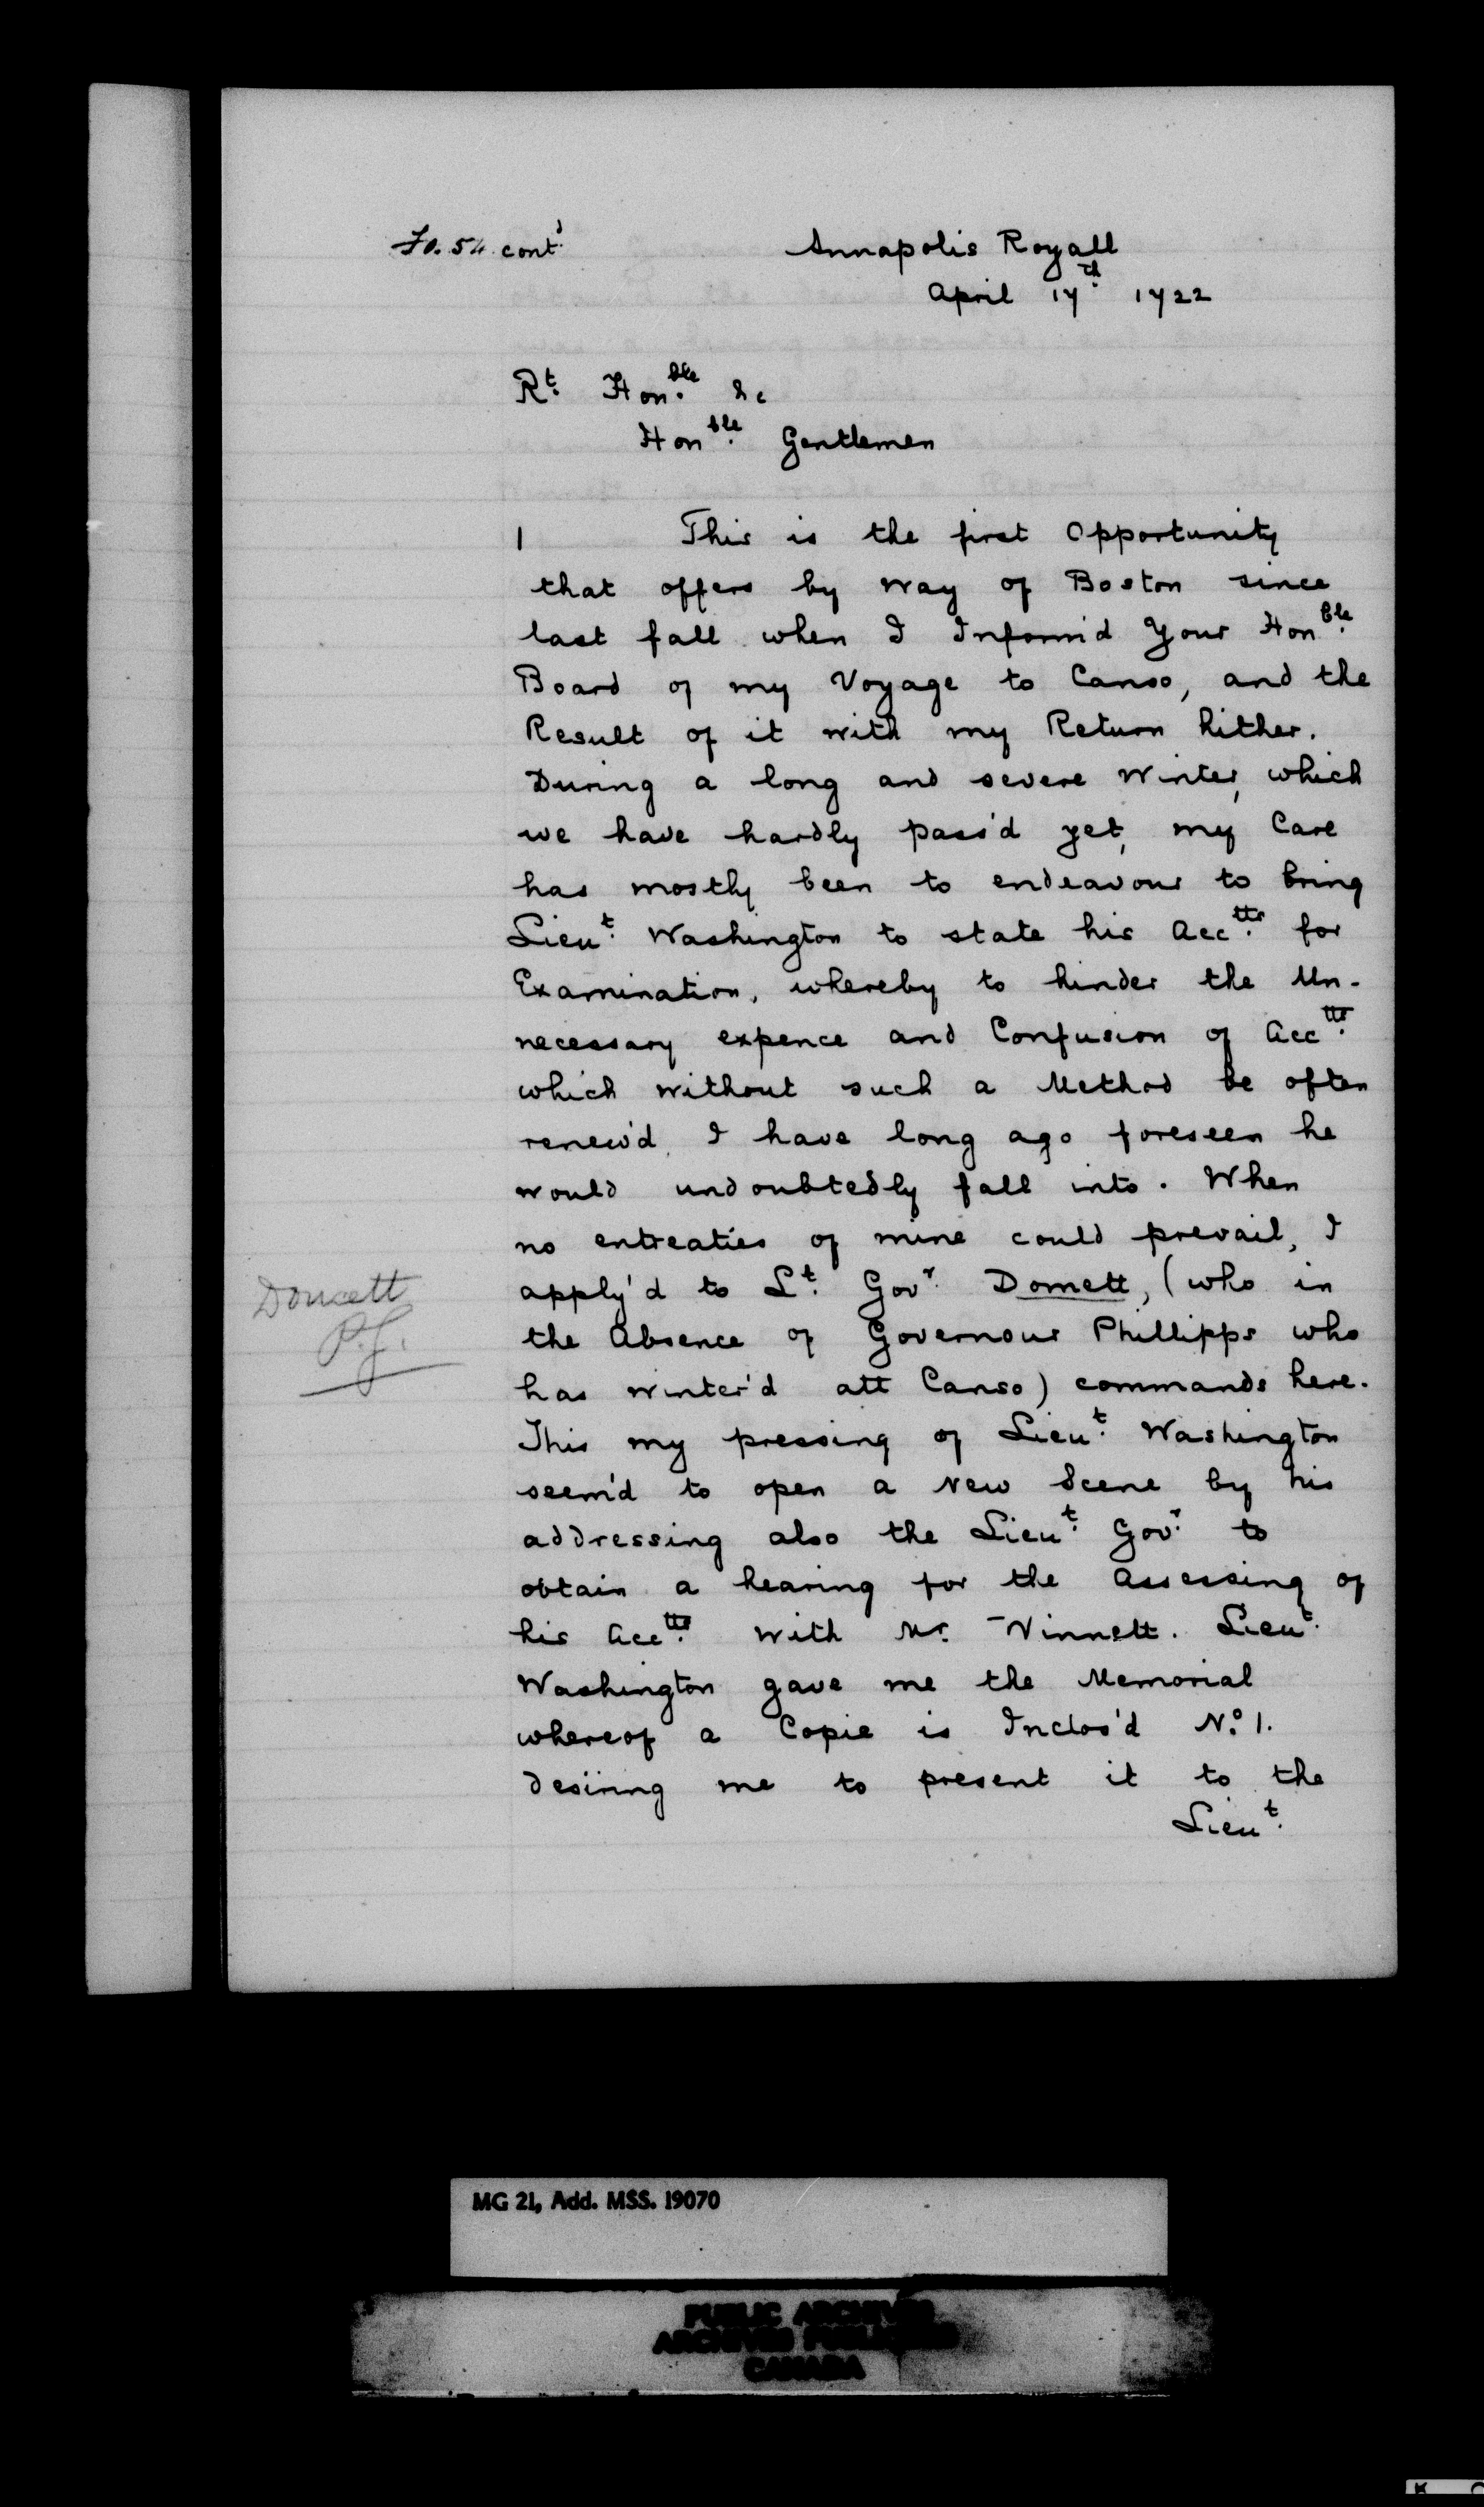 Fo. 54 cont^d.
Annapolis Royall
April 17^th. 1722
R^t. Hon.^ble &c
Hon^ble. Gentlemen
1 This is the first Opportunity
that offers by way of Boston since
last fall when I Inform'd Your Hon^ble.
Board of my Voyage to Canso, and the
Result of it with my Return hither.
During a long and severe Winter, which
we have hardly pass'd yet, my Care
has mostly been to endeavour to bring
Lieu^t. Washington to state his Acc^tts. for
Examination, whereby to hinder the Un-
necessary expence and Confusion of Acc^tts.
which without such a Method be often
renew'd, I have long ago foreseen he
would undoubtedly fall into. When
no entreaties of mine could prevail, I
apply'd to L^t. Gov^r. Domett, (who in
the Absence of Governour Phillipps who
has winter'd att Canso) commands here.
Doucett
P.G.
This my pressing of Lieu^t. Washington
seem'd to open a New Scene by his
addressing also the Lieu^t. Gov^r. to
obtain a hearing for the Assessing of
his Acc^tts. with Mr. Winnett. Lieu^t.
Washington gave me the Memorial
whereof a Copie is Inclos'd N.^o 1.
desiring me to present it to the
Lieu^t.
MG 21, Add. MSS. 19070
PUBLIC ARCHIVES
ARCHIVES PUBLIQUES
CANADA